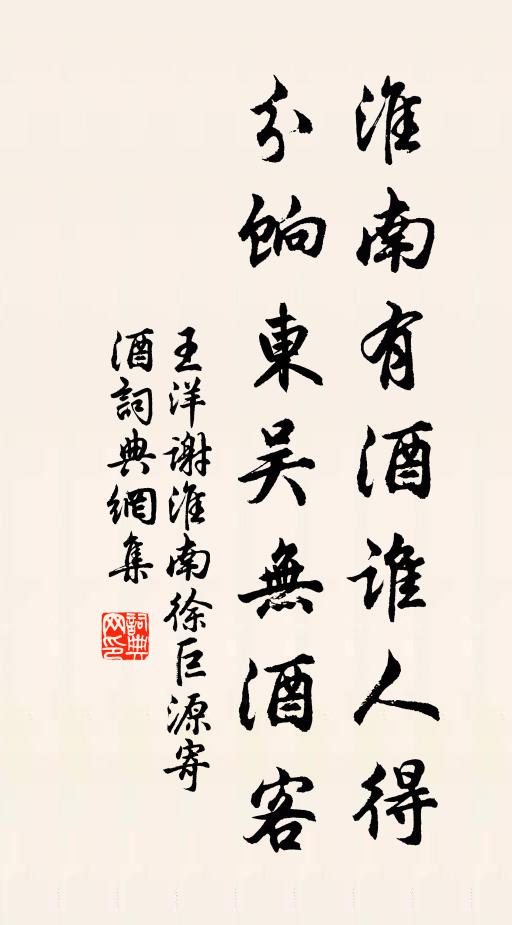 淮南有酒誰人得
分餉東吴無酒客
王洋謝淮南徐巨源寄
酒詞典網集
詞典
网印